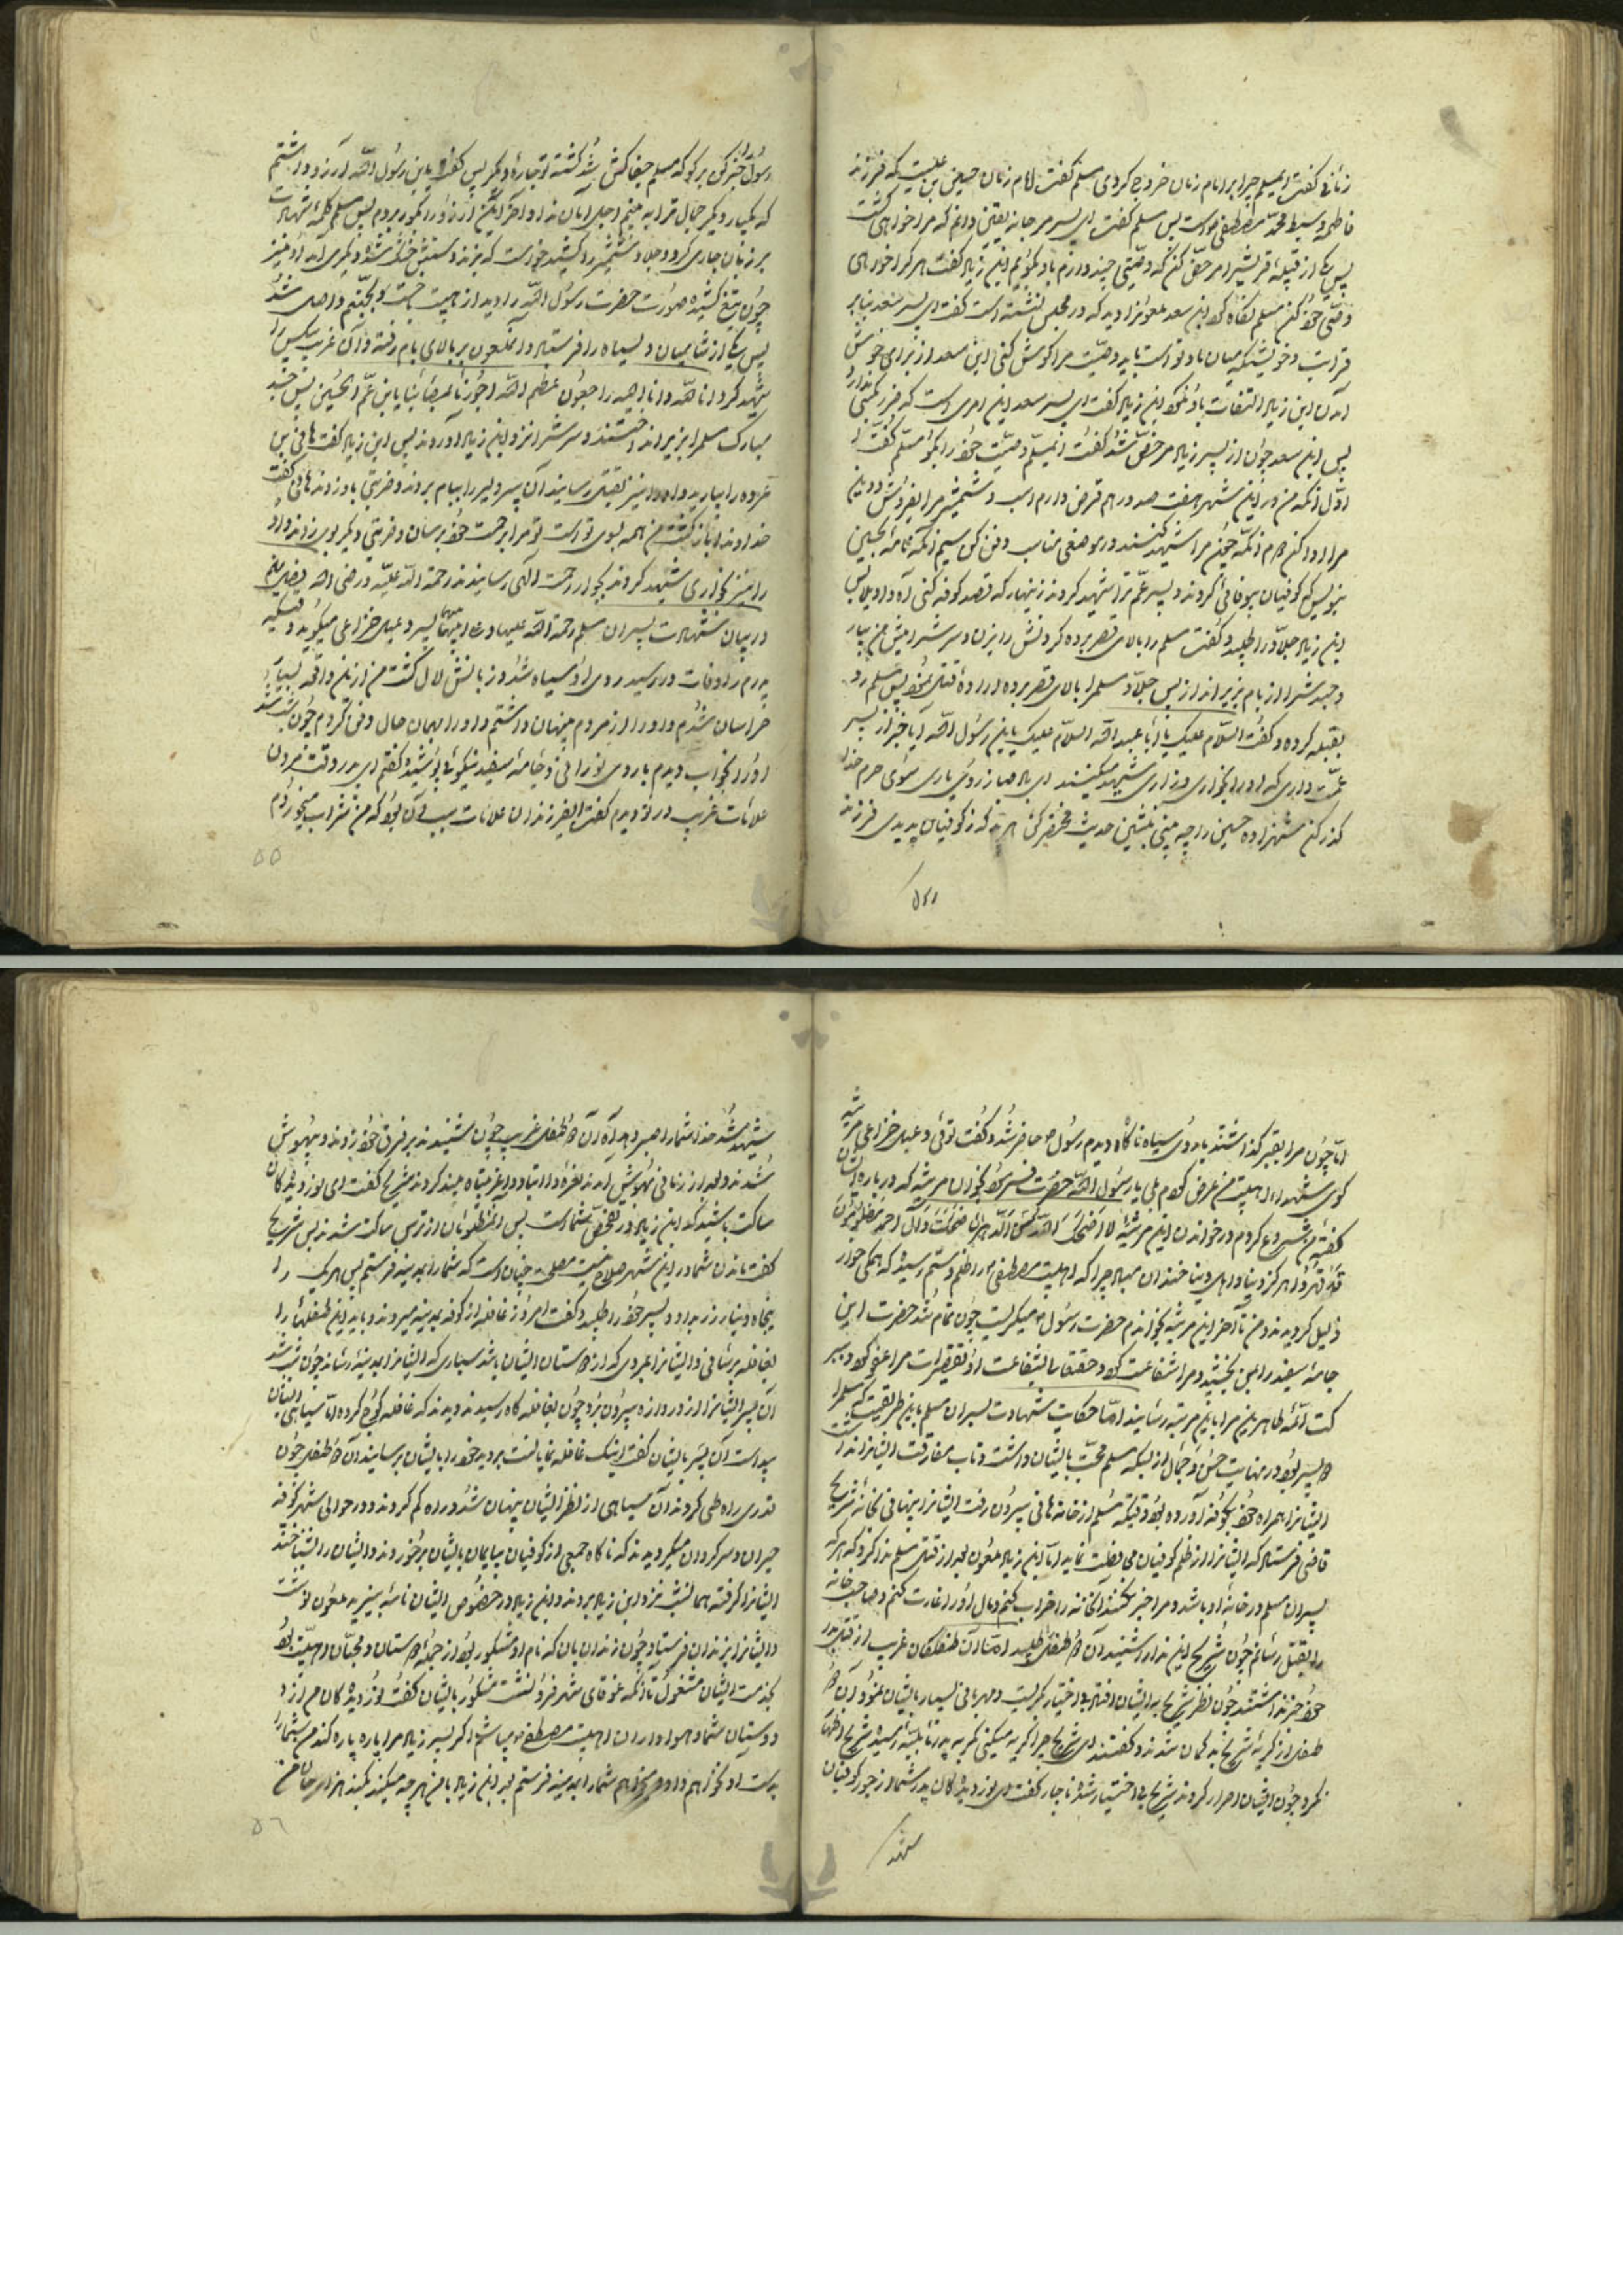 زنانی گفت ای مسلم چرا بر امام زمان خروج کردی مسلم گفت امام زمان حسین بن علیست که فرزند
فاطمه و سبط محمد مصطفی است پس مسلم گفت ای پسر مرجانه یقین دانم که مرا خواهی کشت
پس یکی از قبیله قریش را مرخص کن که وصیتی چند دارم باو بگویم ابن زیاد گفت هر کرا خواهی
وصی خود کن مسلم نگاه کرد ابن سعد ملعونرا دید که در مجلس نشسته است گفت ای پسر سعد بنا بر
قرابت و خویشی که میان ما و تو است باید وصیت مرا گوش کنی ابن سعد از برای خوش
آمدن ابن زیاد التفات باو نکرد ابن زیاد گفت ای پسر سعد این امری است که ضرر
پس ابن سعد چون از پسر زیاد مرخص شد گفت ای مسلم وصیت خود را بگو مسلم گفت
اول آنکه من در این شهر هفت صد درهم قرض دارم اسب و شمشیر مرا بفروش و دین
مرا ادا کن دوم آنکه چون مرا شهید کنند در موضعی مناسب دفن کن سیم آنکه نامه بحسین
بنویس که کوفیان بیوفائی کردند و پسر عم ترا شهید کردند زنهار که قصد کوفه کنی آه و اویلا پس
ابن زیاد جلاد را طلبید و گفت مسلم را بالای قصر برده گردنش را بزن و سرش را پیش من بیار
و جسدش را از بام بزیر انداز پس جلاد مسلم را بالای قصر برده اراده قتل نمود پس مسلم رو
بقبله کرده و گفت السلام علیک یا ابا عبد الله السلام علیک یا ابن رسول الله آیا خبر از پسر
عمت داری که او را بخواری و زاری شهید میکنند ای باد صبا ز روی یاری سوی حرم خدا
گذر کن شهزاده حسین را چه بینی بنشین حدیث مختصر کن هر بد که ز کوفیان بدیدی فرزند
رسول را خبر کن بر گو که مسلم جفا کش شد کشته تو چاره دگر کن پس گفت یا ابن رسول الله آرزو داشتم
که یکبار دیگر جمال ترا به بینم اجل امان نداد آخر این آرزو را بگور بردم پس مسلم کلمه شهادت
بر زبان جاری کرد و جلاد شمشیر را کشید خواست که بزند دستش خشک شد دیگری آمد او نیز
چون تیغ کشید صورت حضرت رسول الله را دید از هیبت جست و بجهنم واصل شد
پس یکی از شامیان دل سیاه را فرستاد و آن ملعون بر بالای بام رفته و آن غریب بیکس را
شهید کرد انا لله و انا الیه راجعون عظم الله اجورنا بمصائبنا یا ابن عم الحسین پس جسد
مبارک مسلم را بزیر انداختند و سرش را نزد ابن زیاد آوردند پس ابن زیاد گفت هانی بن
عروه را بیارید و او را نیز بقتل رسانید آن پیر دلیر را ببام بردند و ضربتی باو زدند هانی گفت
خداوندا بازگشت من همه بسوی تو است تو مرا برحمت خود برسان و ضربتی دیگر بوی زدند و او
را نیز بخواری شهید کردند بجوار رحمت الهی رسانیدند رحمة الله علیه و رضی الله
در بیان شهادت پسران مسلم رحمة الله علیهما پسر دعبل خزاعی میگوید وقتیکه
پدرم را وفات در رسید روی او سیاه شد و زبانش لال گشت من از این واقعه بسیار
هراسان شدم و او را از مردم پنهان داشتم و او را بهمان حال دفن کردم چون شب شد
او را بخواب دیدم با روی نورانی و جامه سفید نیکوئی پوشیده گفتم ای پدر وقت مردن
علامات غریب در تو دیدم گفت ای فرزند آن علامات بسبب آن بود که من شراب میخوردم
۵۵
اما چون مرا بقبر گذاشتند با روی سیاه ناگاه دیدم رسول حاضر شد و گفت توئی دعبل خزاعی مرثیه
گوی شهدا و اهلبیت من عرض کردم بلی یا رسول الله حضرت فرمود بخوان مرثیه که درباره ایشان
گفتهٔ من شروع کردم در خواندن این مرثیه لا اضحک الله سن الدهر ان ضحکت و آل احمد مظلومون
قد قهروا هرگز دنیا و اهل دنیا خندان مباد چرا که اهلبیت مصطفی را ظلم و ستم رسیده که همگی خوار
ذلیل گردیدند و من تا آخر این مرثیه بخواندم حضرت رسول میگریست چون تمام شد حضرت این
جامه سفید را بمن بخشید و مرا شفاعت کرد و حقتعالی بشفاعت او تقصیرات مرا عفو کرد و ببر
کت ائمه طاهرین مرا باین مرتبه رسانید اما حکایت شهادت پسران مسلم باین طریقست که مسلم را
دو پسر بود در نهایت حسن و جمال از بسکه مسلم محبت بایشان داشت و تاب مفارقت ایشان نداشت
ایشانرا همراه خود بکوفه آورده بود وقتیکه مسلم از خانه هانی بیرون رفت ایشانرا پنهانی بخانه شریح
قاضی فرستاد که ایشانرا از ظلم کوفیان محافظت نماید اما ابن زیاد ملعون بعد از قتل مسلم ندا کرد که هر که
پسران مسلم در خانه او باشد و مرا خبر نکند آنخانه را خراب کنم و مال او را غارت کنم و صاحب خانه
را بقتل رسانم چون شریح این ندا را شنید آن دو طفل را طلبید اما آن طفلکان غریب از قتل پدر
خود خبر نداشتند چون نظر شریح بایشان افتاد بی اختیار گریست و مهربانی بسیار بایشان نمود آن دو
طفل از گریه شریح به گمان شدند و گفتند ای شریح چرا گریه میکنی مگر به پدر ما بلیه رسید شریح اظهار
نکرد چون ایشان اصرار کردند شریح بی اختیار شد ناچار گفت ای نور دیدگان پدر شما از جور کوفیان
شهید
شهید شد خدا شما را صبر دهد آه آن دو طفل غریب چون شنیدند بر فرق خود زدند و بیهوش
شدند و بعد از زمانی بهوش آمدند نعره وا ابتاه و وا غربتاه بلند کردند شریح گفت ای نور دیدگان
ساکت باشید که ابن زیاد در تفحص شما است پس آن مظلومان از ترس ساکت شدند پس شریح
گفت ماندن شما در این شهر صلاح نیست مصلحت چنان است که شما را بمدینه فرستم پس هر یک را
پنجاه دینار زر بداد و پسر خود را طلبید و گفت امروز قافله از کوفه بمدینه میروند و باید این طفلها را
بقافله برسانی و ایشانرا بمردی که از دوستان ایشان باشد سپاری که ایشانرا بمدینه رساند چون شب شد
آن پسر ایشانرا از دروازه بیرون برد چون بقافله گاه رسیدند دیدند که قافله کوچ کرده اما سیاهی ایشان
پیدا است آن پسر بایشان گفت اینک قافله نمایانست بروید خود را بایشان برسانید آن دو طفل چون
قدری راه طی کردند آن سیاهی از نظر ایشان پنهان شد و راه گم کردند و در حوالی شهر کوفه
حیران و سرگردان میگردیدند که ناگاه جمعی از کوفیان بی ایمان بایشان برخوردند و ایشان را شناختند
ایشانرا گرفته همان شب نزد ابن زیاد بردند و ابن زیاد در خصوص ایشان نامه به یزید ملعون نوشت
و ایشانرا بزندان فرستاد و چون زندان بان که نام او مشکور بود از جمله دوستان و محبان اهلبیت بود
بخدمت ایشان مشغول تا آنکه غوغای شهر فرو نشست مشکور بایشان گفت نور دیدگان من از
دوستان شما و هواداران اهلبیت مصطفی میباشم اگر پسر زیاد مرا پاره پاره کند من شما را
بدست او نخواهم داد و میخواهم شما را بمدینه فرستم بعد ابن زیاد با من هر چه میکند بکند هزار جان من
۵۶